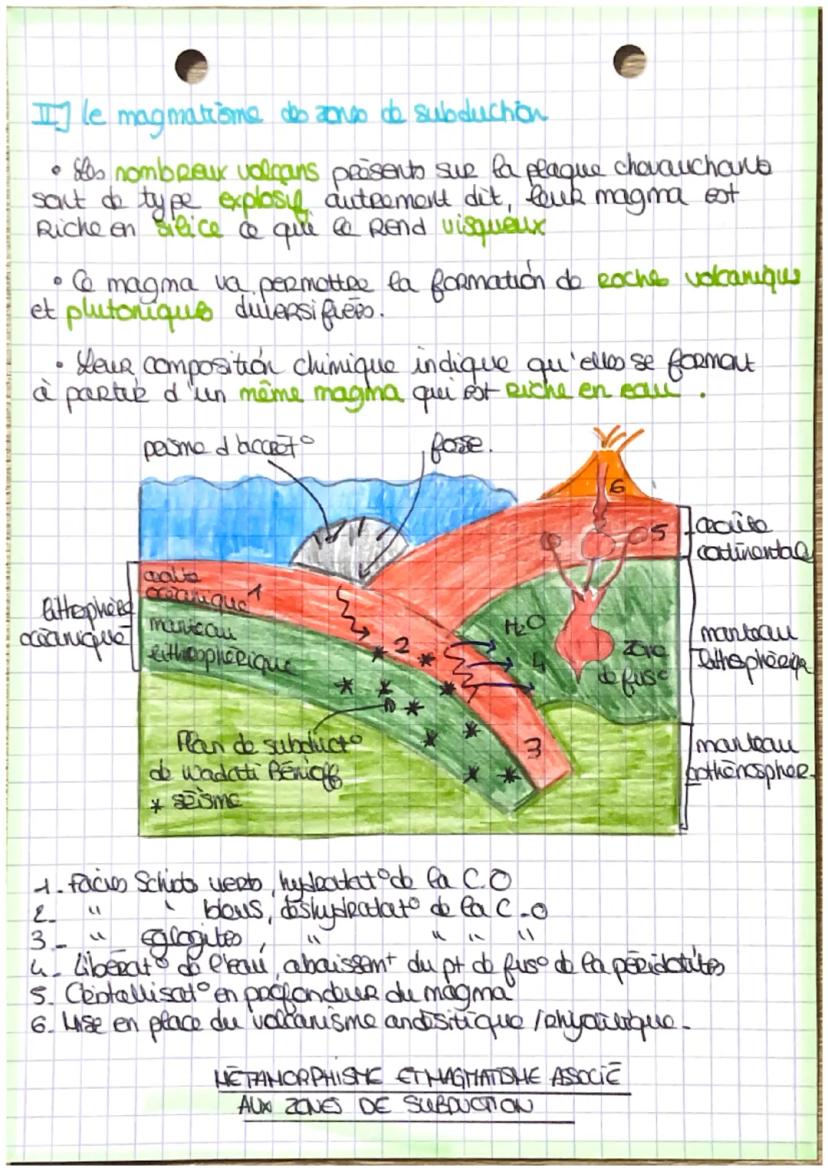 II] Le magmatisme des zones de subduction
• Les nombreux volcans présents sur la plaque chevauchante
sont de type explosif, autrement dit, leur magma est
Riche en silice ce qui le rend visqueux
• Ce magma va permettre la formation de roches volcaniques
et plutoniques diversifiées.
• Leur composition chimique indique qu'elles se forment
à partir d'un même magma qui est riche en eau.
prisme d'accret°
fosse.
6
5
croûte
continentale
croûte
océanique 1
lithosphère
océanique
manteau
lithosphérique
2
H2O
4
zone
de fus°
manteau
lithosphériq
Plan de subduct°
de Wadati Bénioff
* séisme
3
manteau
asthénosphér.
1. Faciès Schists verts, hydratat° de la C.O
2. " " bleus, déshydratat° de la C.O
3. " éclogites, " " " "
4. Libérat° de l'eau, abaissemt du pt de fus° de la péridotites
5. Cristallisat° en profondeur du magma
6. Mise en place du volcanisme andésitique / rhyolitique.
MÉTAMORPHISME ET MAGMATISME ASSOCIÉ
AUX ZONES DE SUBDUCTION